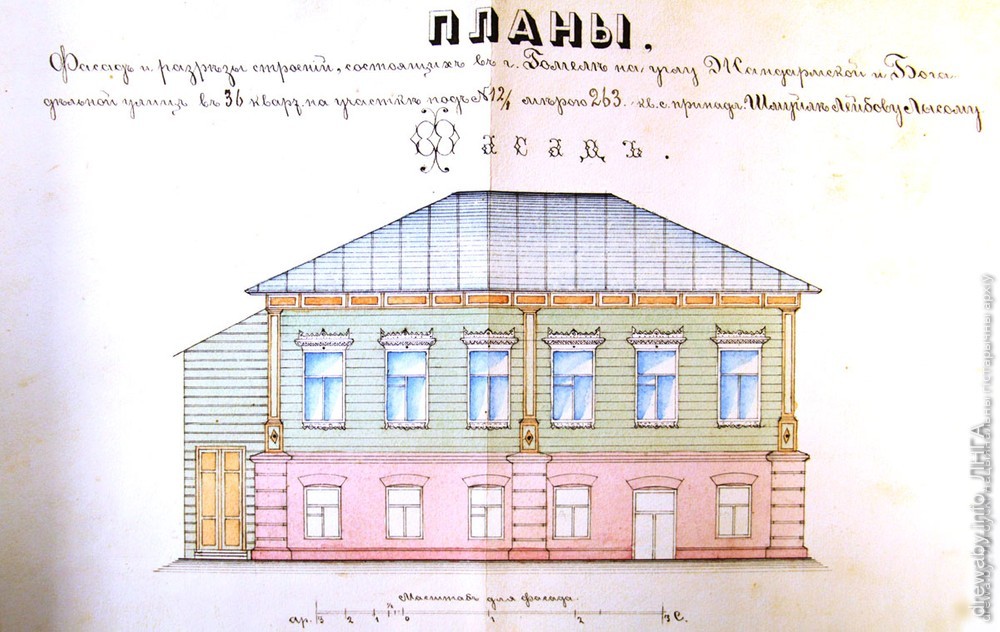 ПЛАНЫ,
Фасадъ и разрѣзы строеній, состоящихъ въ г. Гомелѣ на углу Жандармской и Бога-
дѣльной улицъ въ 36 кварт. на участкѣ подъ № 12/1 мѣрою 263. кв. с. принадл. Шмуйлѣ Лейбову Лысому
Фасадъ.
Масштабъ для фасада.
ар. 3 2 1 0 1 2 3 С.
drewaby.info, ДНГА